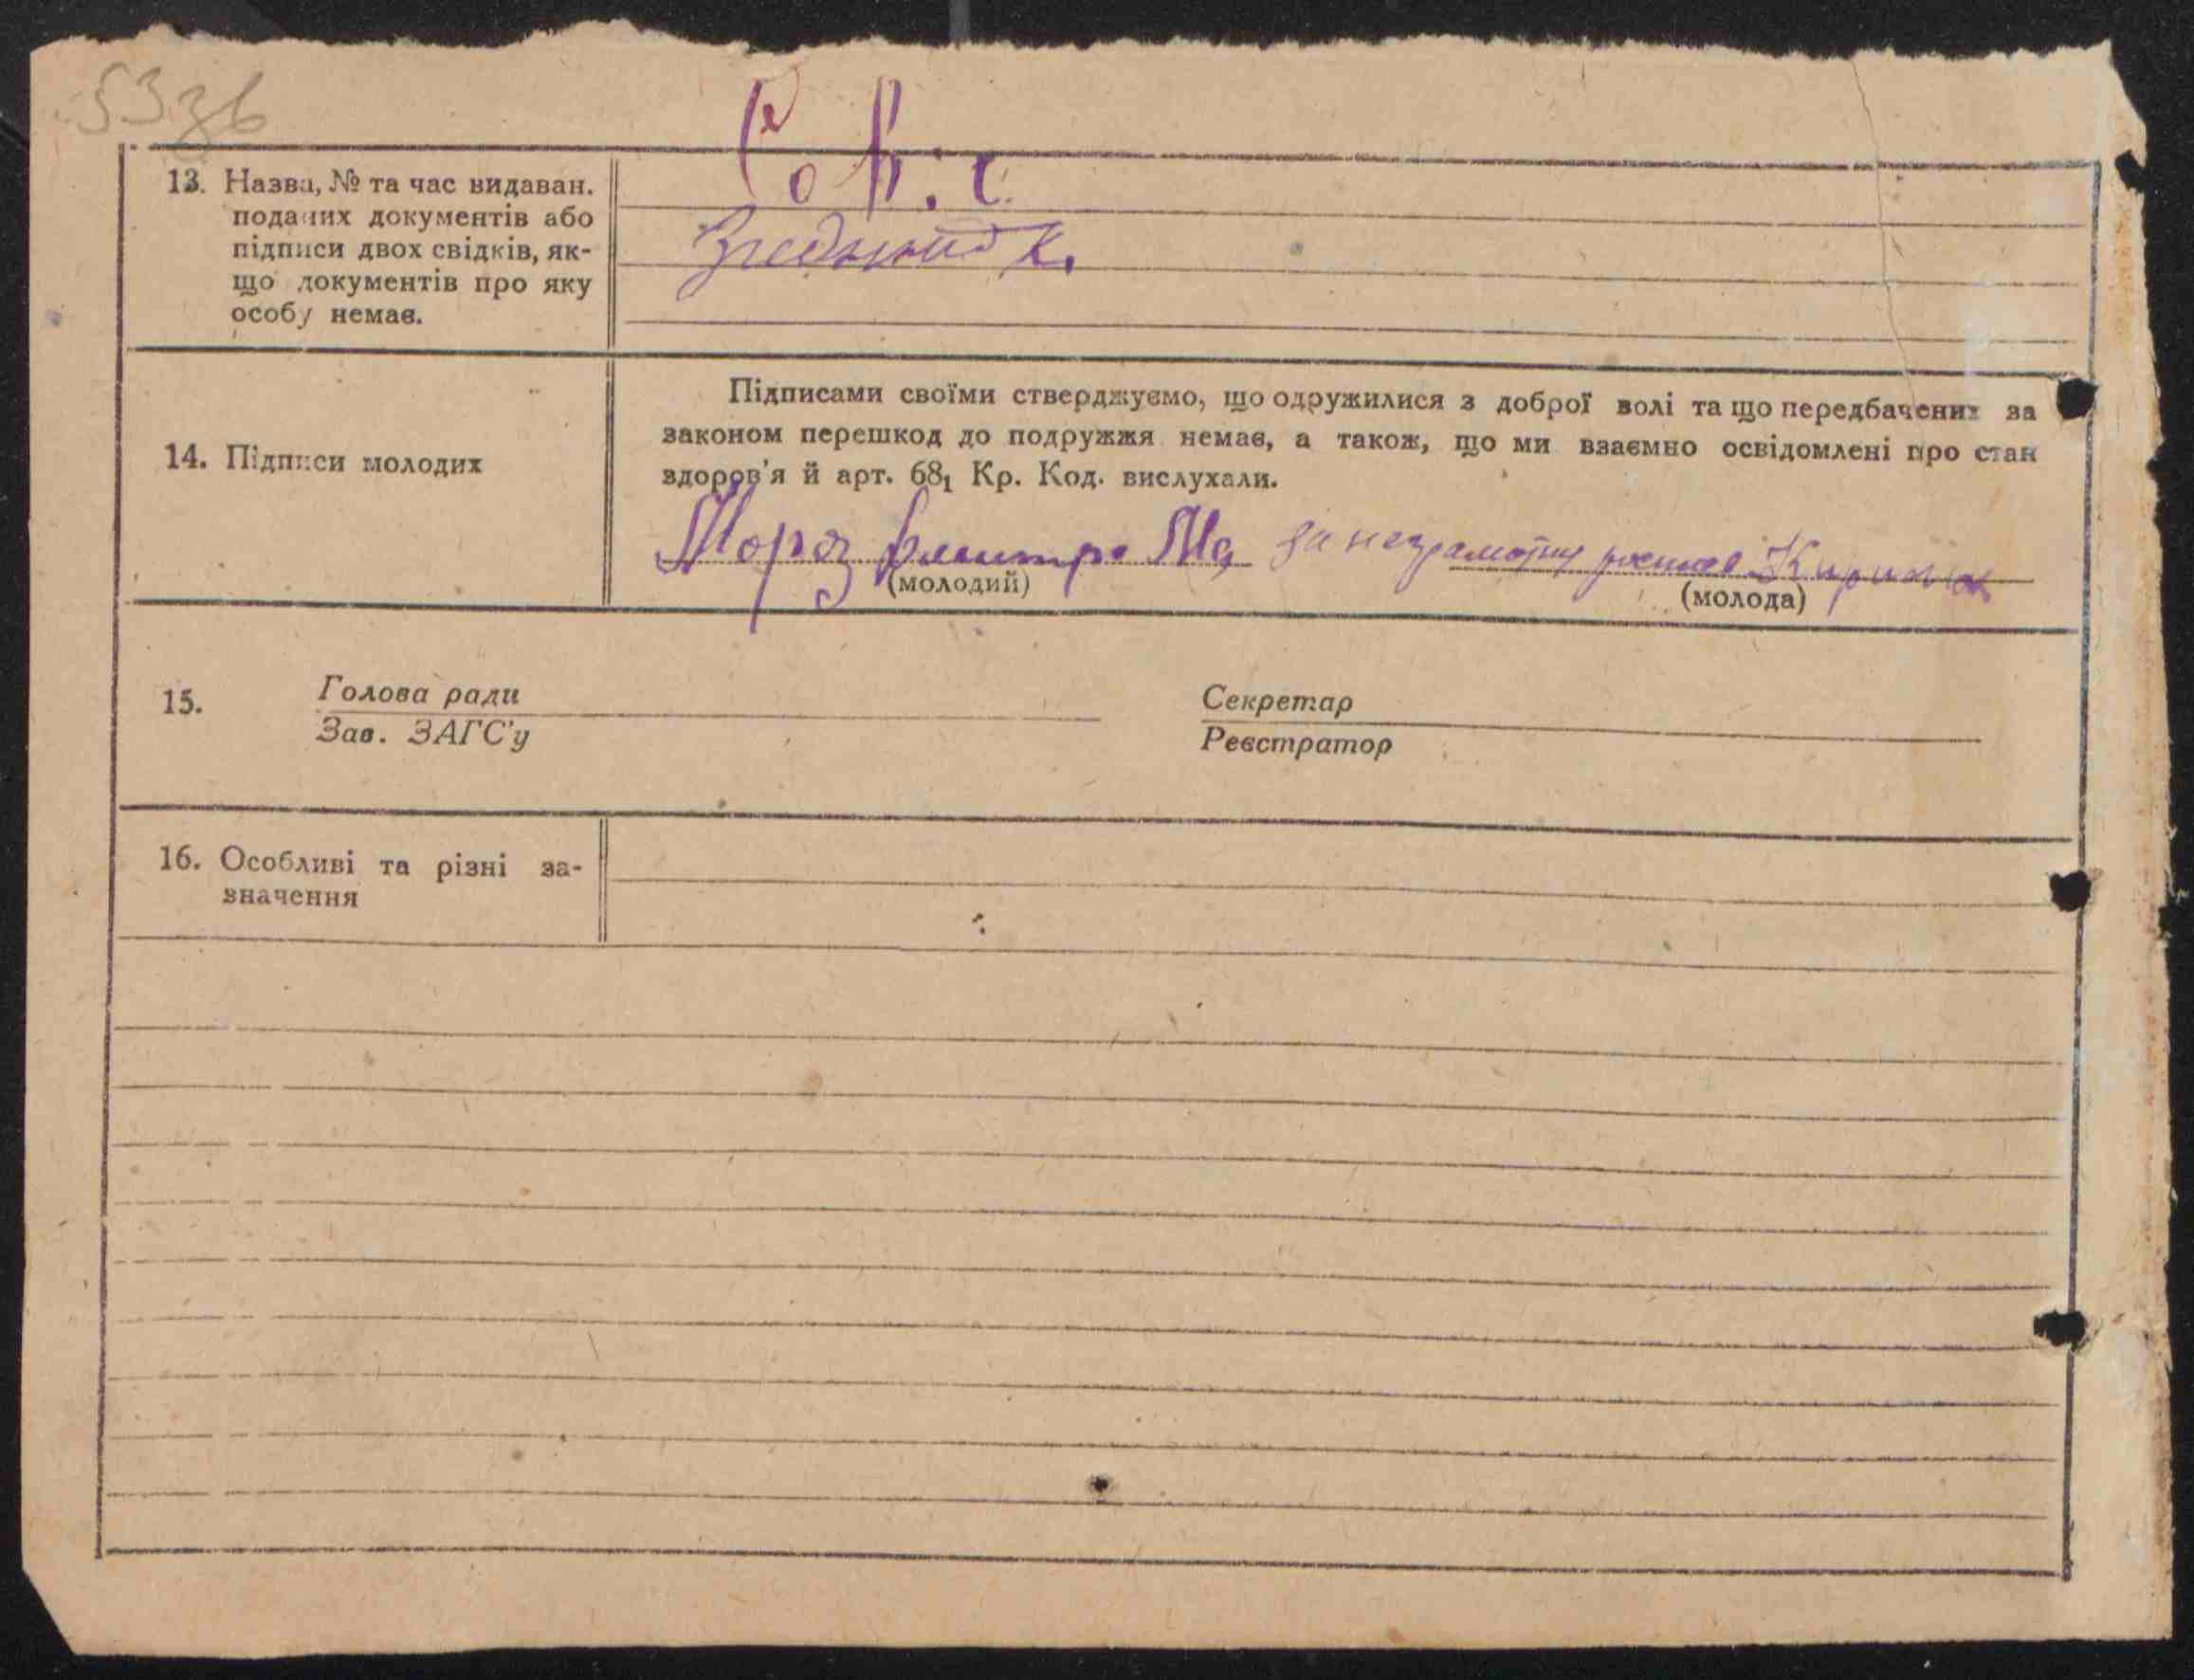 53зв
13. Назва, № та час видаван.
поданих документів або
підписи двох свідків, як-
що документів про яку
особу немає.
14. Підписи молодих
Підписами своїми стверджуємо, що одружилися з доброї волі та що передбачених за
законом перешкод до подружжя немає, а також, що ми взаємно освідомлені про стан
здоров'я й арт. 68₁ Кр. Код. вислухали.
Мороз Дмитро за неграмотну
(молодий) (молода)
15. Голова ради Секретар
Зав. ЗАГС'у Реєстратор
16. Особливі та різні за-
значення